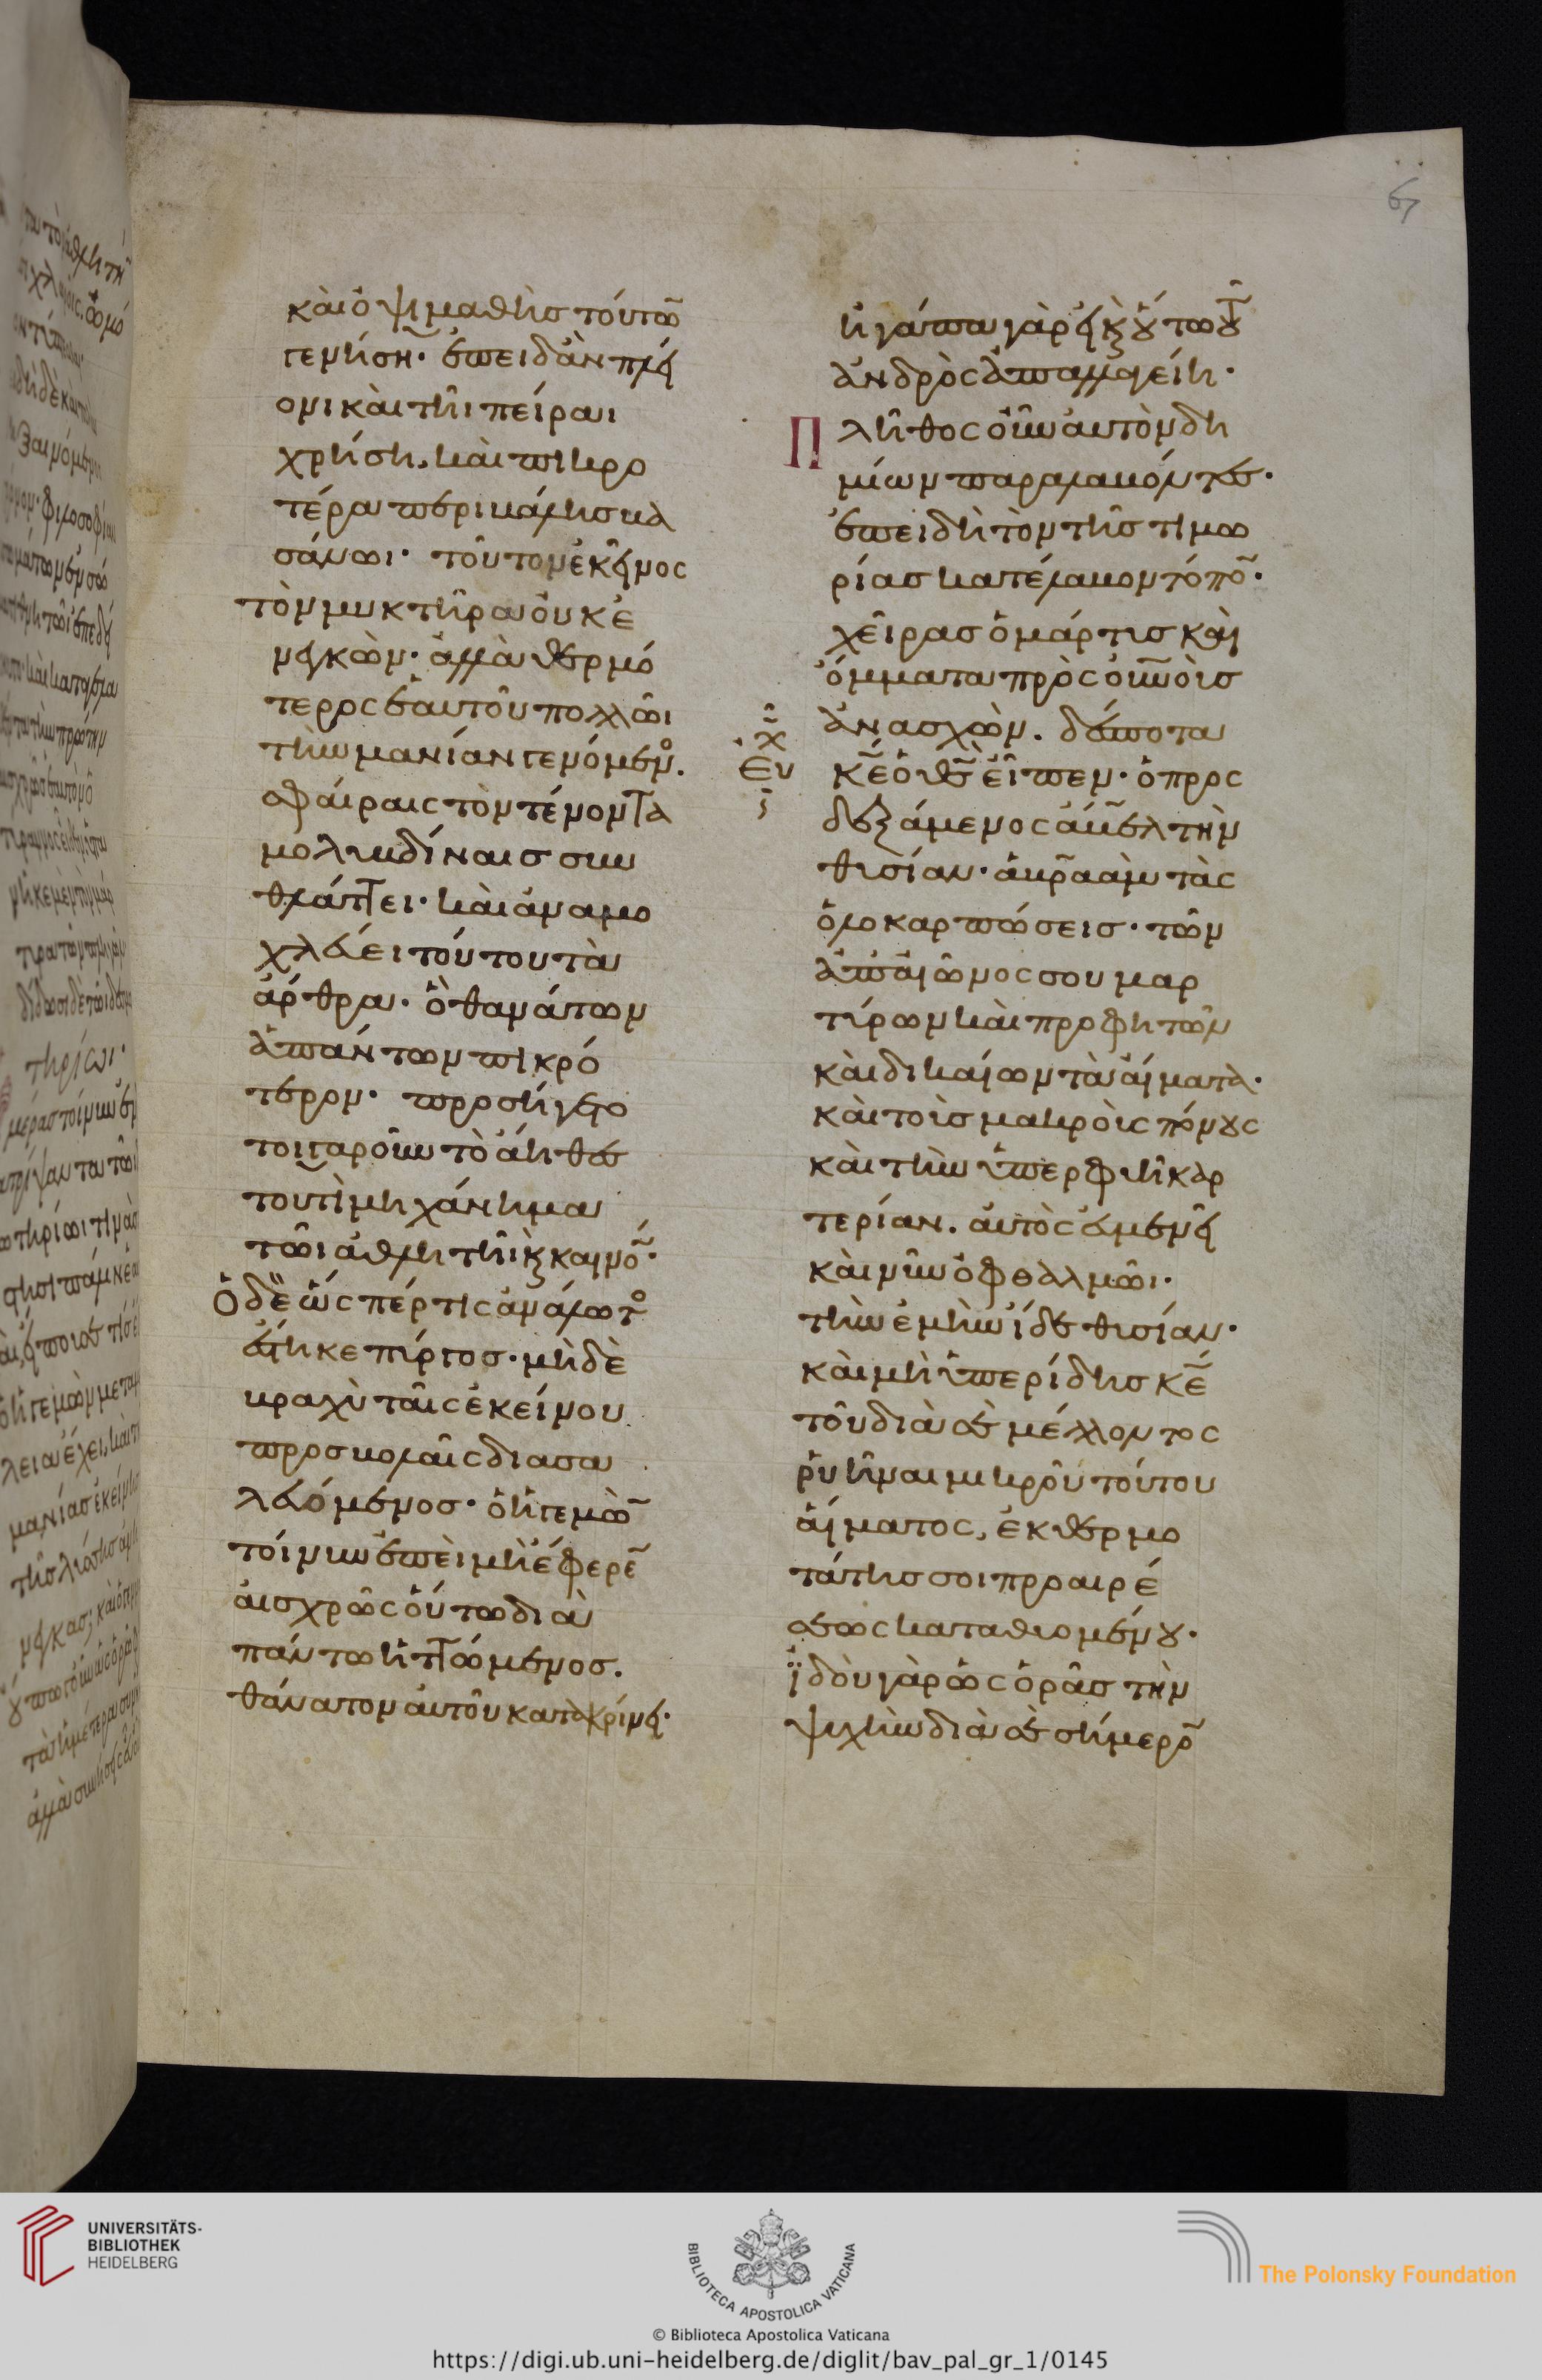 67
καὶ ὀψιμαθὴσ τούτω̄
γενήση· ἐπειδὰν πλεί
ονι καὶ τῆι πείραι
χρήση, καὶ πικρο
τέρα περιβάλησ βα
σάνωι· τοῦτον ἐκεῖνος
τὸν μυκτῆρα οὐκ ἐ
νεγκὼν· ἀλλὰ θερμό
τερος ἑαυτοῦ πολλῶι
τὴν μανίαν γενόμενος.
σφαίραις τὸν τένοντα
μολιβδίναισ συν
θλάττει· καὶ ἀναμο
χλεύει τούτου τὰ
ἄρθρα· ὃ θανάτων
ἁπάντων πικρό
τερον· προσήγετο
τοιγαροῦν τὸ ἀηθὲσ
τουτὶ μηχάνημα
τῶι ἀθλητῆι καὶ καινο̄́·
Ὁ δὲ ὥς πέρ τις ἀνάλωτος
εἱστήκε πύργοσ· μηδὲ
βραχὺ ταῖς ἐκείνου
προσβολαῖς διασα
λευόμενοσ· ὁ ἡγεμὼ̄
τοίνυν ἐπεὶ μὴ ἔφερε̄
αἰσχρῶς οὕτω διὰ
πάντων ἡττώμενοσ.
θάνατον αὐτοῦ κατακρίνει·
ἠγάπα γὰρ εἰ καὶ οὕτω τοῦ
ἀνδρὸς ἀπαλλαγείη·
Πλῆθος οὖν αὐτὸν δη
μίων παραλαβόντεσ·
ἐπειδὴ τὸν τῆσ τιμω
ρίασ κατέλαβον τόπο̄·
χεῖρασ ὁ μάρτυσ καὶ
ὄμματα πρὸς οὐ̄νοὺσ
ἀνασχὼν. δέσποτα
κ̄ε̄ ὁ θ̄σ̄ εἶπεν· ὁ προς
δεξάμενος ἄβελ τὴν
θυσίαν· ἀβραὰμ τὰς
ὁλοκαρπώσεισ· τῶν
ἀπ αἰῶνος σου μαρ
τύρων καὶ προφητῶν
καὶ δικαίων τὰ αἵματα·
καὶ τοὺσ μακροὺς πόνους
καὶ τὴν ὑπερφυῆ καρ
τερίαν. αὐτὸς εὐμενεῖ
καὶ νῦν ὀφθαλμῶι·
τὴν ἐμὴν ἴδε θυσίαν·
καὶ μὴ ὑπερίδησ κ̄ε̄
τοῦ διὰ σὲ μέλλοντος
ῥυῆναι μικροῦ τούτου
αἵματος, ἐκ θερμο
τάτησ σοι προαιρέ
σεως καταθυομένου·
ἰδοὺ γὰρ ὡς ὁρᾶσ τὴν
ψυχὴν διὰ σὲ σήμερο̄
UNIVERSITÄTS-
BIBLIOTHEK
HEIDELBERG
BIBLIOTECA APOSTOLICA VATICANA
The Polonsky Foundation
© Biblioteca Apostolica Vaticana
https://digi.ub.uni-heidelberg.de/diglit/bav_pal_gr_1/0145